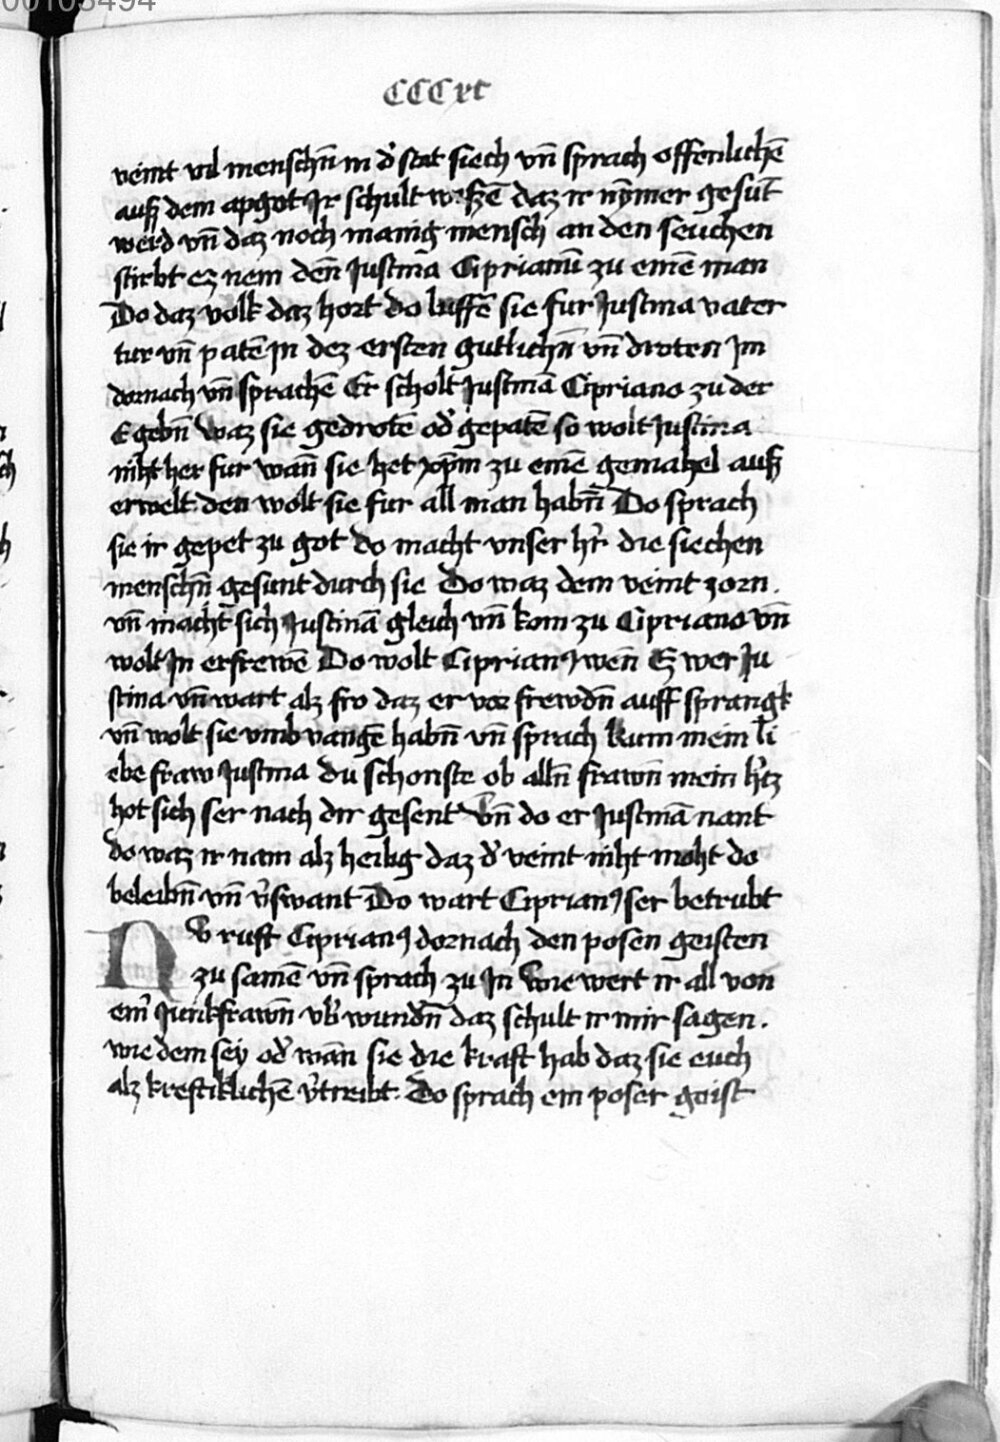 00103494
CCCxc
veint vil menschn̄ in d̕ stat siech vn̄ sprach offenlichē
auß dem apgot Ir schult wißē daz ir nȳmer gesūt
werd vn̄ daz noch manig mensch an den seuchen
stirbt ez nem den̄ Justina Ciprianū zu einē man
Do daz volk daz hort do luffē sie fur Justina vater
tur vn̄ patē In dez ersten gutlichn̄ vn̄ droten Im
dornach vn̄ sprachē Er scholt Justinā Cipriano zu der
E gebn̄ waz sie gedrotē od̕ gepatē so wolt Justina
niht her fur wan̄ sie het xp̄m zu einē gemahel auß
erwelt den wolt sie fur all man habn̄ Do sprach
sie ir gepet zu got do macht vnser h̕r die siechen
menschn̄ gesunt durch sie Do waz dem veint zorn.
vn̄ macht sich Justinā gleich vn̄ kom zu Cipriano vn̄
wolt In erfrewē Do wolt Ciprianꝰ wen̄ Ez wer Ju
stina vn̄ wart alz fro daz er vor frewdn̄ auff sprangk
vn̄ wolt sie vmbvangē habn̄ vn̄ sprach kum mein li
ebe fraw Justina du schonste ob alln̄ frawn̄ mein h̕tz
hot sich ser nach dir gesent vn̄ do er Justinā nant
do waz ir nam alz heilig daz d̕ veint niht moht do
beleibn̄ vn̄ v̕swant Do wart Ciprianꝰ ser betrubt
Dv ruft Ciprianꝰ dornach den posen geisten
zu samē vn̄ sprach zu In wie wert ir all von
ein̕ Junkfrawn̄ vb̕wundn̄ daz schult ir mir sagen.
wie dem sey od̕ wān sie die kraft hab daz sie euch
alz kreftiklichē v̕treibt. Do sprach ein poser geist